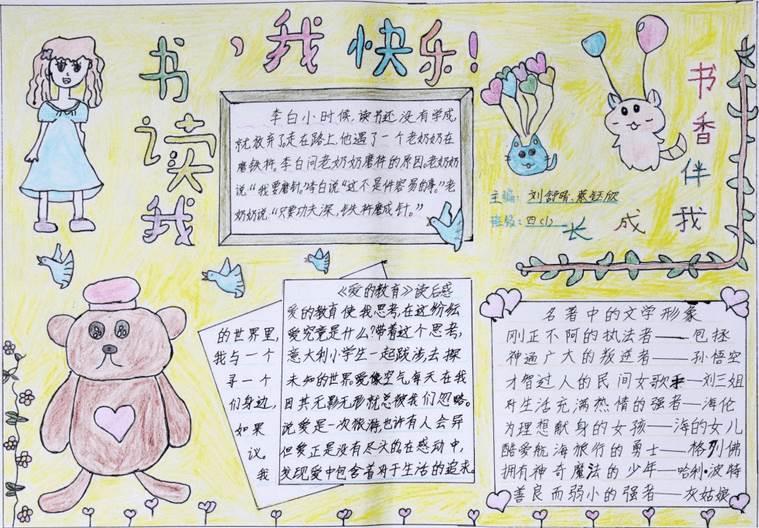 我读书，我快乐!
书香伴我
成长
主编:刘舒晴.蔡钰欣
班级:四(1)
李白小时候,读书还没有学成,
就放弃了,走在路上,他遇了一个老奶奶在
磨铁杵。李白问老奶奶磨杵的原因,老奶奶
说“我要磨针,”李白说“这不是件容易的事,”老
奶奶说“只要功夫深,铁杵磨成针。”
《爱的教育》读后感
爱的教育使我思考,在这纷纭
爱究竟是什么?带着这个思考,
意大利小学生一起跋涉去探
未知的世界。爱像空气每天在我
因其无影无形就总被我们忽略。
说爱是一次旅游,也许有人会异
但爱正是没有尽头的,在感动中,
发现爱中包含着对于生活的追求
的世界里,
我与一个
寻一个
们身边,
如果
议,
我
名著中的文学形象
刚正不阿的执法者——包拯
神通广大的叛逆者——孙悟空
才智过人的民间女歌手——刘三姐
对生活充满热情的强者——海伦
为理想献身的女孩——海的女儿
酷爱航海旅行的勇士——格列佛
拥有神奇魔法的少年——哈利·波特
善良而弱小的强者——灰姑娘